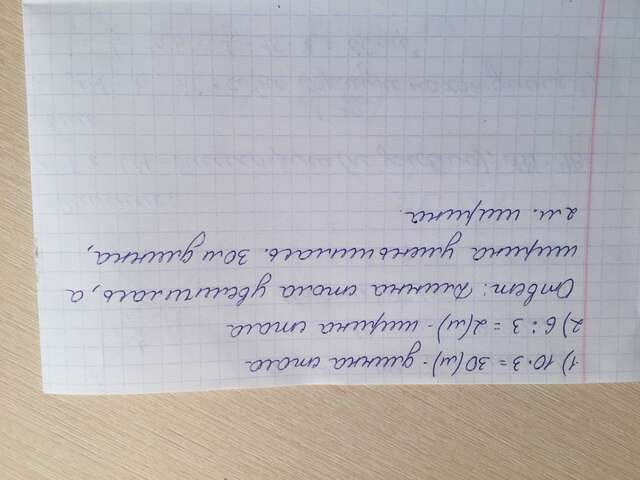 1) 10·3 = 30(м)- длинна стола
2) 6 : 3 = 2(м)- ширина стола
Ответ: Длинна стола увеличилась, а
ширина уменьшилась. 30м длинна,
2м. ширина.